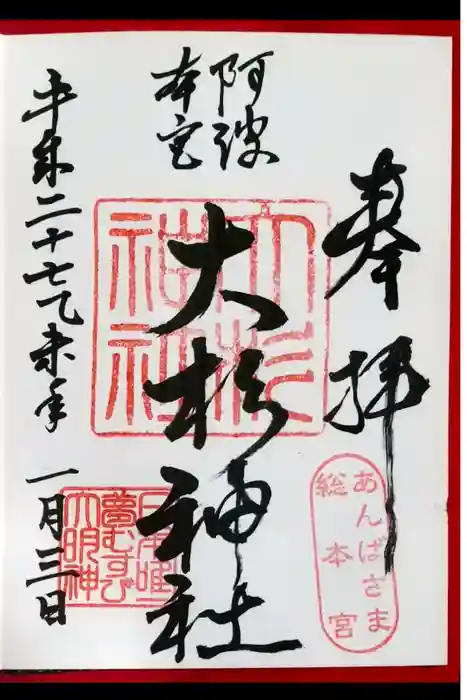 奉拝
阿波
本宮
大杉神社
平成二十七乙未年 一月三日
大杉
神社
あんばさま
総本宮
日本唯一
夢むすび
大明神